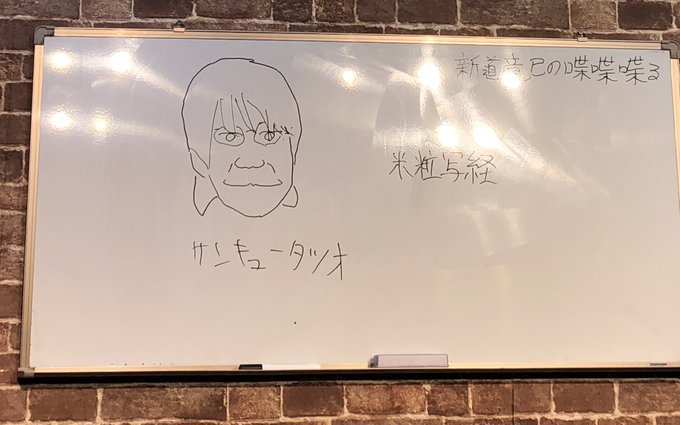 新道竜巳の喋喋喋る
米粒写経
サンキュータツオ